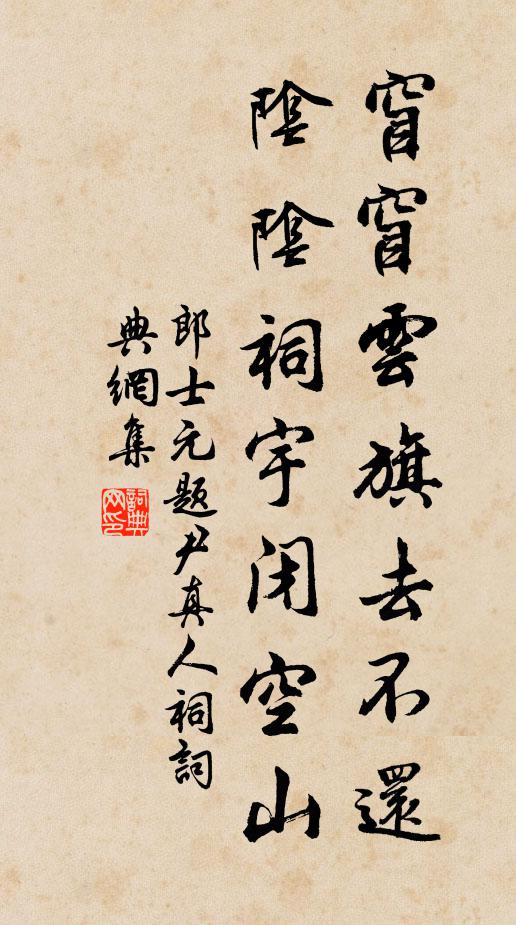 窅窅雲旗去不還
陰陰祠宇閉空山
郎士元題尹真人祠詞
典網集
詞典
网印